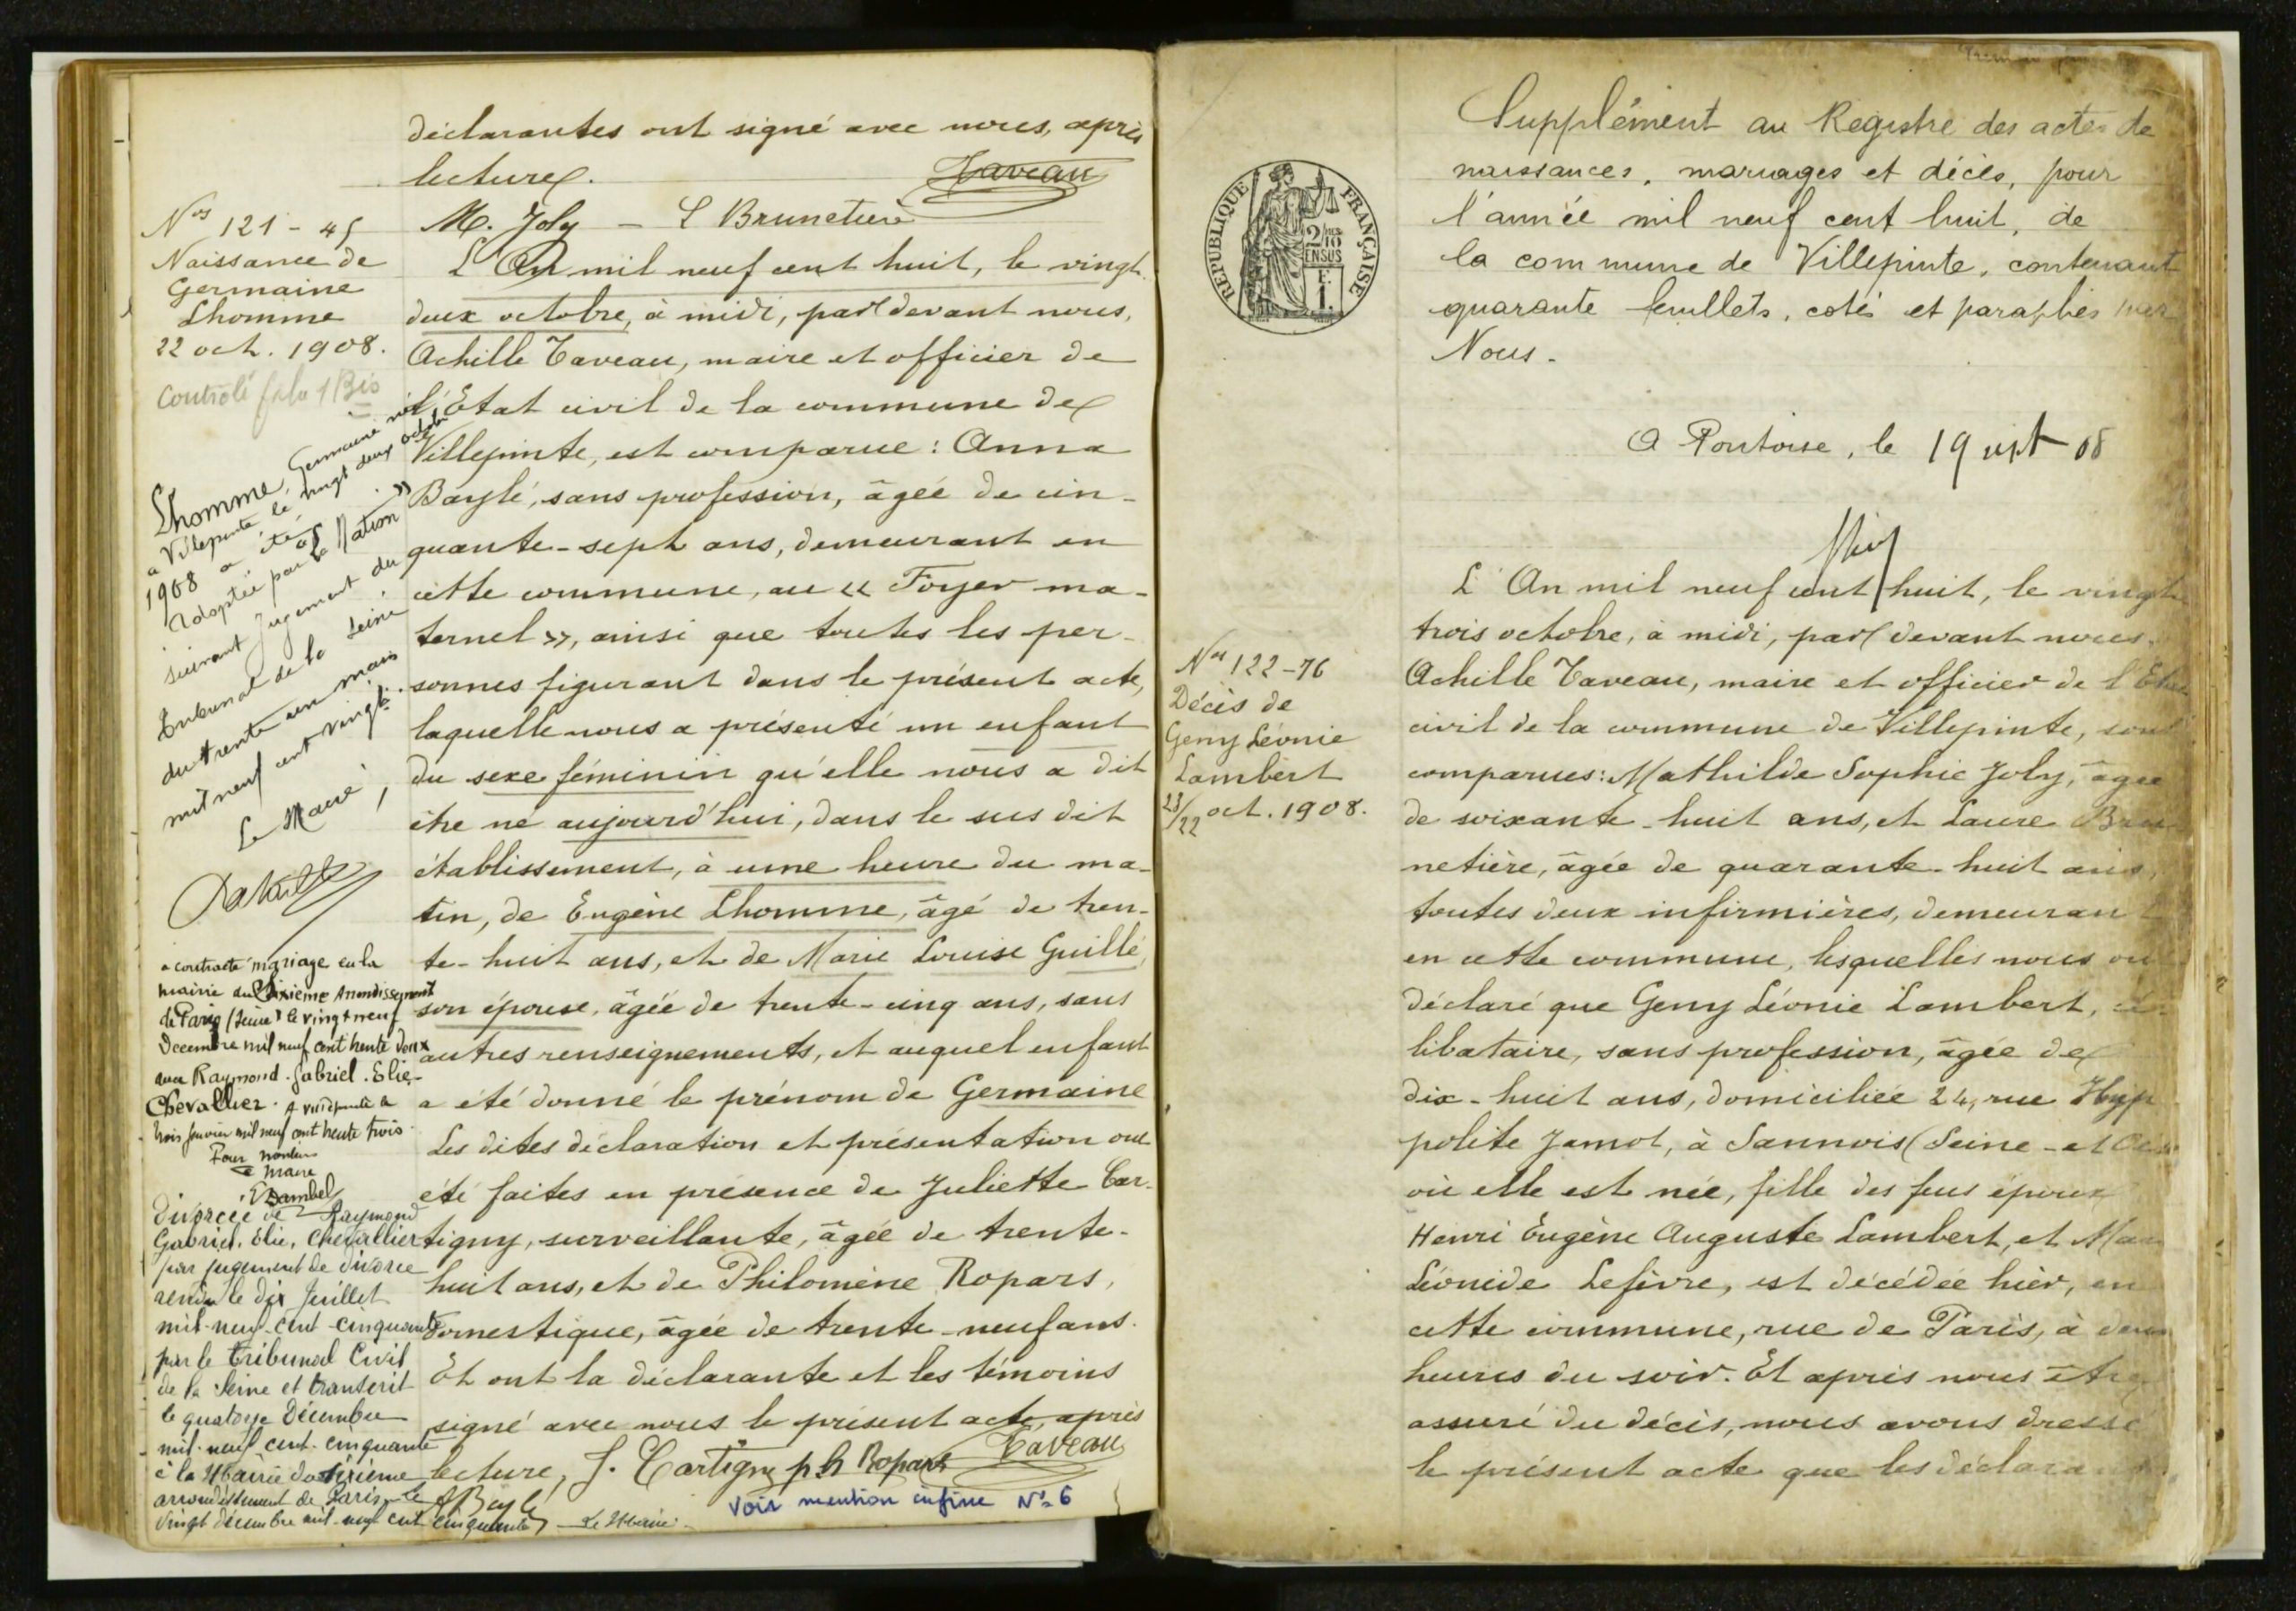 déclarantes ont signé avec nous, après
lecture.
Taveau
M. Joly – L Brunetière
Nos 121 - 45
Naissance de
Germaine
Lhomme
22 oct. 1908.
Contrôlé
1 Bis
Lhomme Germaine née
à Villepinte le vingt deux octobre
1908 a été
"adoptée par la Nation"
suivant jugement du
Tribunal de la Seine
du trente un mars
mil neuf cent vingt.
Le Maire,
a contracté mariage en la
mairie du Sixième Arrondissement
de Paris (Seine) le vingt neuf
Décembre mil neuf cent trente deux
avec Raymond. Gabriel. Elie
Chevallier. A Villepinte le
trois janvier mil neuf cent trente trois
Pour mention
Le Maire
Divorcée de Raymond
Gabriel, Elie, Chevallier
par jugement de divorce
rendu le dix Juillet
mil-neuf-cent-cinquante
par le tribunal Civil
de la Seine et transcrit
le quatorze Décembre
mil-neuf cent-cinquante
à la Mairie du sixième
arrondissement de Paris, le
vingt décembre mil-neuf cent cinquante – Le Maire
L'An mil neuf cent huit, le vingt
deux octobre, à midi, par devant nous,
Achille Taveau, maire et officier de
l'Etat civil de la commune de
Villepinte, est comparue : Anna
Baylé, sans profession, âgée de cin-
quante-sept ans, demeurant en
cette commune, au « Foyer ma-
ternel », ainsi que toutes les per-
sonnes figurant dans le présent acte,
laquelle nous a présenté un enfant
du sexe féminin qu'elle nous a dit
être né aujourd'hui, dans le sus dit
établissement, à une heure du ma-
tin, de Eugène Lhomme, âgé de tren-
te-huit ans, et de Marie Louise Guillé,
son épouse, âgée de trente-cinq ans, sans
autres renseignements, et auquel enfant
a été donné le prénom de Germaine
Les dites déclaration et présentation ont
été faites en présence de Juliette Car-
tigny, surveillante, âgée de trente-
huit ans, et de Philomène Ropars,
domestique, âgée de trente-neuf ans.
Et ont la déclarante et les témoins
signé avec nous le présent acte, après
lecture, J. Cartigny ph Ropars Taveau
A Baylé
Voir mention infine N° 6
REPUBLIQUE FRANÇAISE
2/10
EN SUS
Supplément au Registre des actes de
naissances, mariages et décès, pour
l'année mil neuf cent huit, de
la commune de Villepinte, contenant
quarante feuillets, coté et paraphés par
Nous.
A Pontoise, le 19 sept 08
Nos 122-76
Décès de
Geny Léonie
Lambert
23/22 oct. 1908.
L'An mil neuf cent huit, le vingt
trois octobre, à midi, par devant nous
Achille Taveau, maire et officier de l'Etat
civil de la commune de Villepinte, sont
comparues : Mathilde Sophie Joly, âgée
de soixante-huit ans, et Laure Bru-
netière, âgée de quarante-huit ans,
toutes deux infirmières, demeurant
en cette commune, lesquelles nous ont
déclaré que Geny Léonie Lambert, cé-
libataire, sans profession, âgée de
dix-huit ans, domiciliée 24, rue Hyp
polite Jamot, à Sannois (Seine-et-Oise
où elle est née, fille des feus époux
Henri Eugène Auguste Lambert, et Marie
Léonide Lefèvre, est décédée hier, en
cette commune, rue de Paris, à deux
heures du soir. Et après nous être
assuré du décès, nous avons dressé
le présent acte que les déclarantes